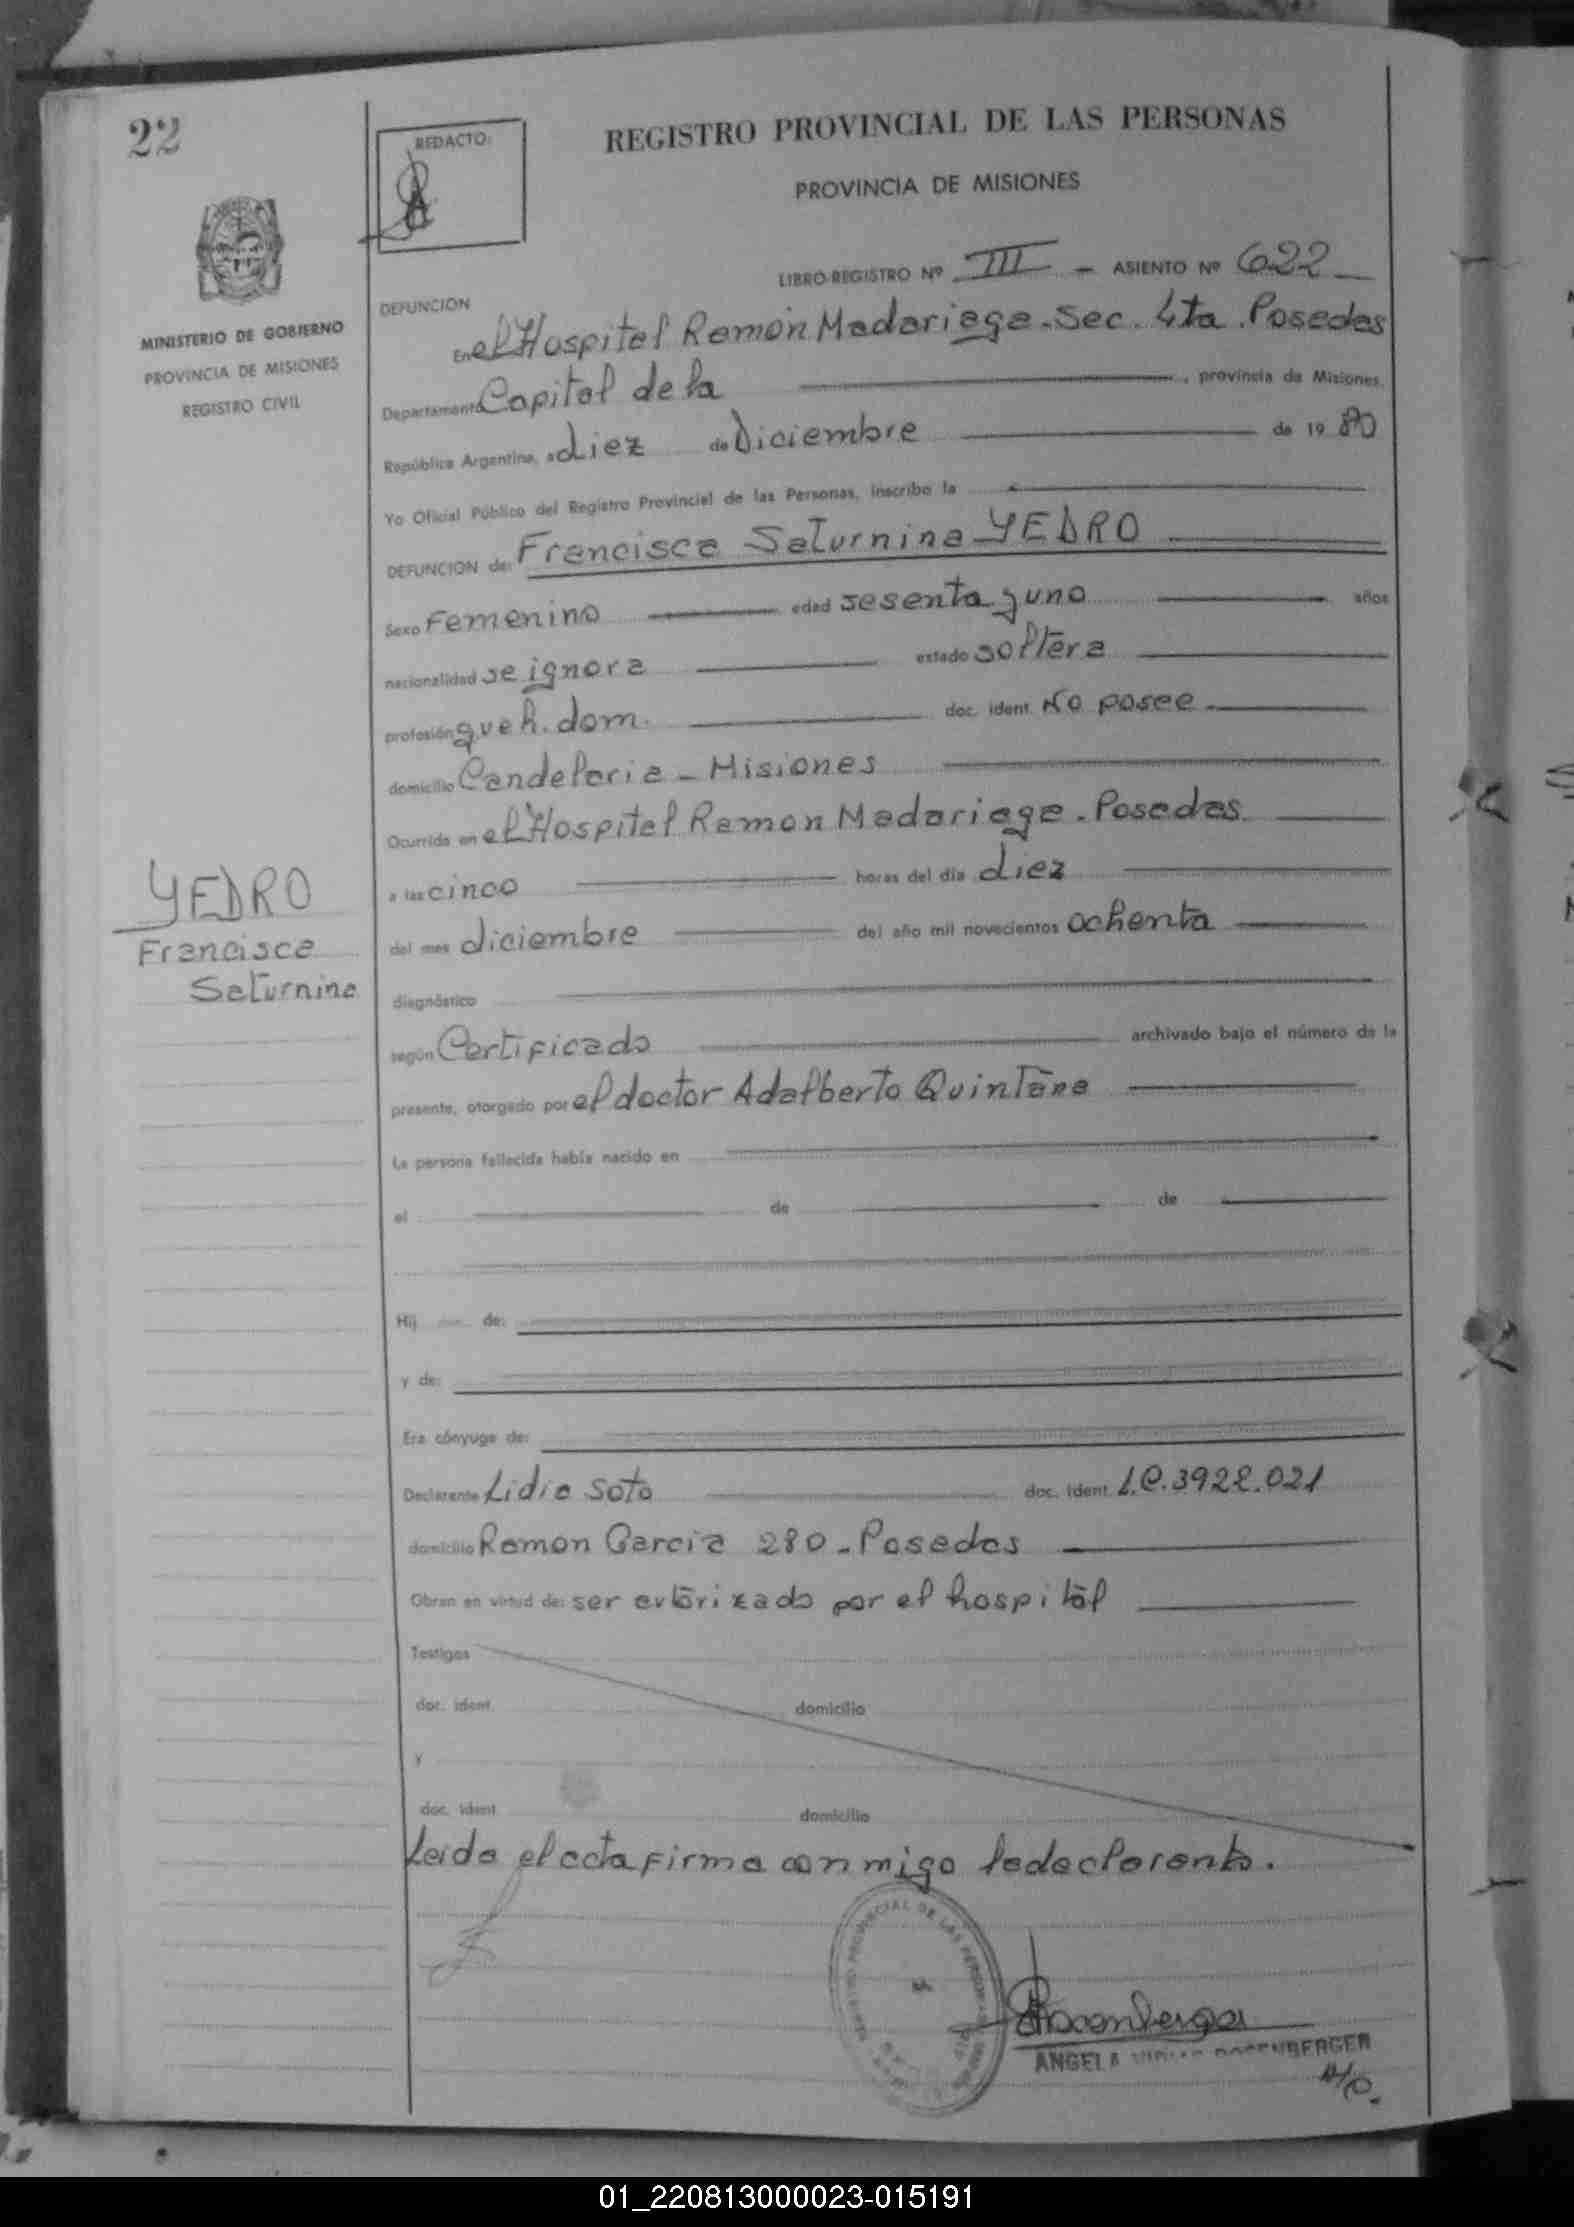 22
REDACTO:
REGISTRO PROVINCIAL DE LAS PERSONAS
PROVINCIA DE MISIONES
MINISTERIO DE GOBIERNO
PROVINCIA DE MISIONES
REGISTRO CIVIL
LIBRO-REGISTRO Nº III - ASIENTO Nº 622
DEFUNCION
En el Hospital Ramón Madariaga. Sec. 4ta. Posadas
Departamento Capital de la , provincia de Misiones,
República Argentina, a diez de Diciembre de 19 80
Yo Oficial Público del Registro Provincial de las Personas, inscribo la
DEFUNCION de: Francisca Saturnina YEDRO
Sexo Femenino edad sesenta y uno años
nacionalidad se ignora estado soltera
profesión queh. dom. doc. ident. No posee
domicilio Candelaria - Misiones
Ocurrida en el Hospital Ramón Madariaga. Posadas
a las cinco horas del día diez
del mes diciembre del año mil novecientos ochenta
YEDRO
Francisca
Saturnina
diagnóstico
según Certificado archivado bajo el número de la
presente, otorgado por el doctor Adalberto Quintana
La persona fallecida había nacido en
el de de
Hij de:
y de:
Era cónyuge de:
Declarante Lidia Soto doc. ident. L.C. 3922.021
domicilio Ramon Garcia 280 - Posadas
Obran en virtud de: ser autorizado por el hospital
Testigos
doc. ident. domicilio
y
doc. ident. domicilio
Leida el acta firma conmigo la declarante.
REGISTRO PROVINCIAL DE LAS PERSONAS
ANGELA ROSENBERGER
01_220813000023-015191